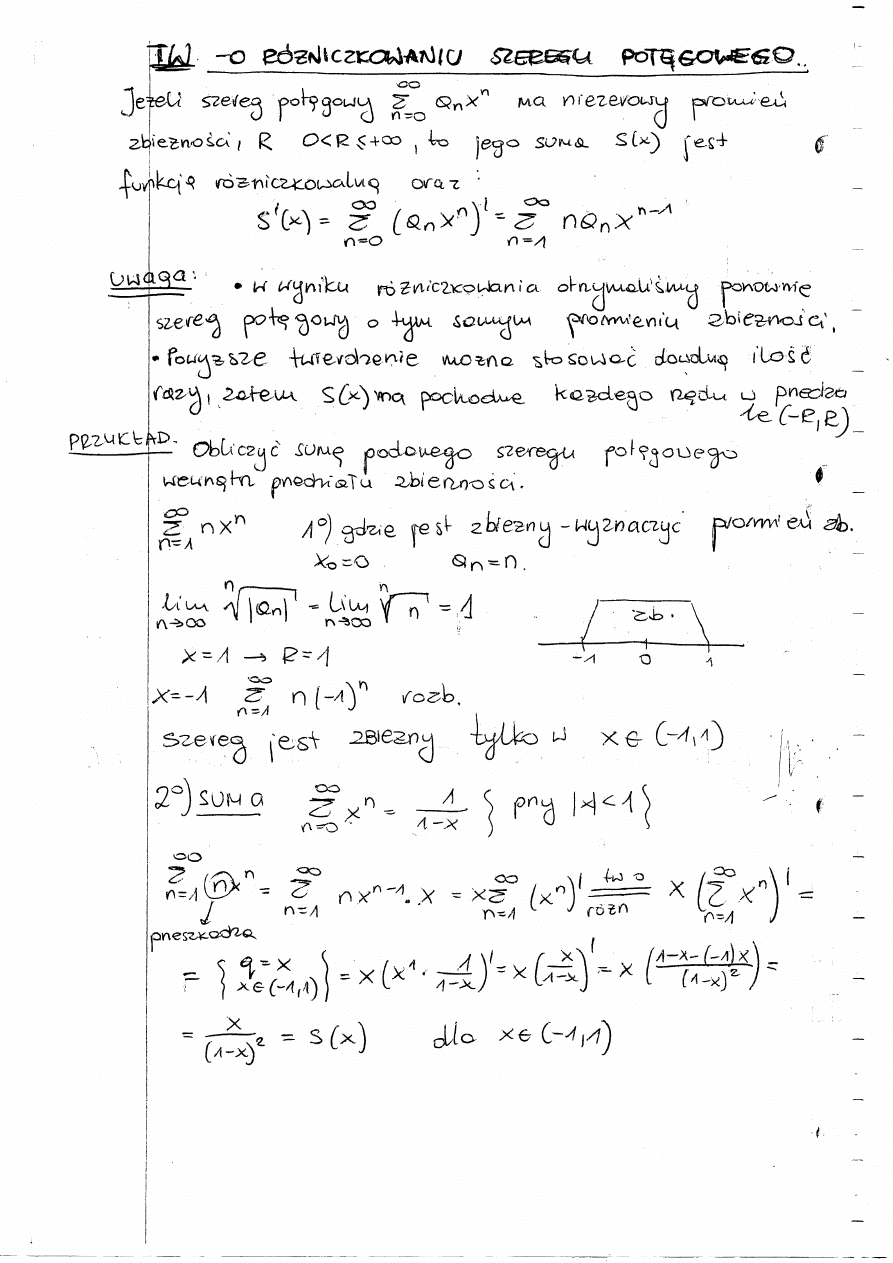 TW - O RÓŻNICZKOWANIU SZEREGU POTĘGOWEGO..
Jeżeli szereg potęgowy ∞ Σ n=0 aₙxⁿ ma niezerowy promień
zbieżności, R 0<R≤+∞, to jego suma S(x) jest
funkcją różniczkowalną oraz :
S'(x) = ∞ Σ n=0 (aₙxⁿ)' = ∞ Σ n=1 naₙxⁿ⁻¹
Uwaga: • w wyniku różniczkowania otrzymaliśmy ponownie
szereg potęgowy o tym samym promieniu zbieżności.
• Powyższe twierdzenie można stosować dowolną ilość
razy, zatem S(x) ma pochodne każdego rzędu w przedzia
le (-R,R)
PRZYKŁAD. Obliczyć sumę podanego szeregu potęgowego
wewnątrz przedziału zbieżności.
∞ Σ n=1 nxⁿ 1°) gdzie jest zbieżny - wyznaczyć promień zb.
x₀=0 aₙ=n.
lim n→∞ ⁿ√|aₙ| = lim n→∞ ⁿ√n = 1
zb.
-1 0 1
x=1 → R=1
x=-1 ∞ Σ n=1 n(-1)ⁿ rozb.
szereg jest zbieżny tylko w x∈(-1,1)
2°) SUMA ∞ Σ n=0 xⁿ = 1/(1-x) { przy |x|<1 }
∞ Σ n=1 nxⁿ = ∞ Σ n=1 nxⁿ⁻¹·x = x ∞ Σ n=1 (xⁿ)' = tw o różn x (∞ Σ n=1 xⁿ)' =
przeszkadza
= { q=x x∈(-1,1) } = x(x¹· 1/(1-x))' = x(x/(1-x))' = x((1-x-(-1)x)/(1-x)²) =
= x/(1-x)² = S(x) dla x∈(-1,1)